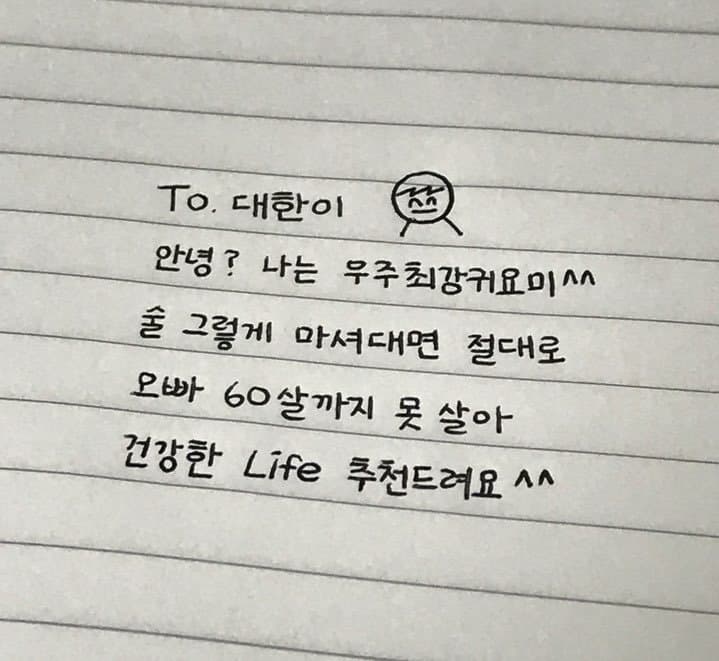 To. 대한이
안녕? 나는 우주최강귀요미^^
술 그렇게 마셔대면 절대로
오빠 60살까지 못 살아
건강한 Life 추천드려요 ^^